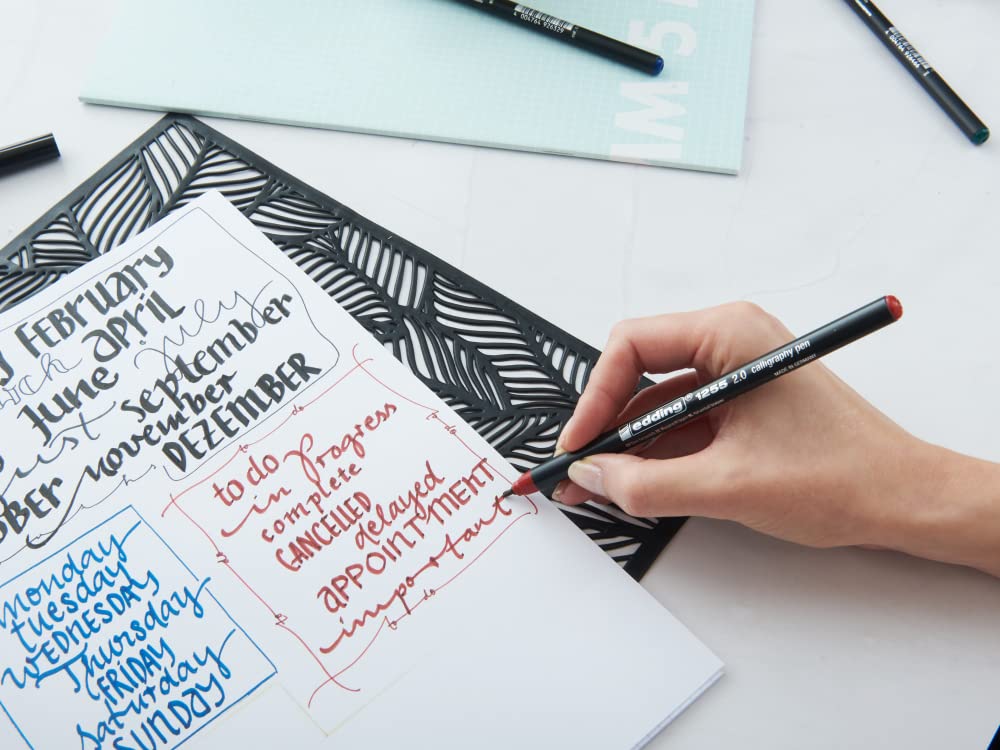 FEBRUARY
June April July
September
November
DEZEMBER
to do
in Progress
complete
CANCELLED
delayed
APPOINTMENT
important
monday
tuesday
WEDNESDAY
Thursday
FRIDAY
saturday
SUNDAY
edding® 1255 2.0 calligraphy pen
MADE IN GERMANY
4 004764 926329